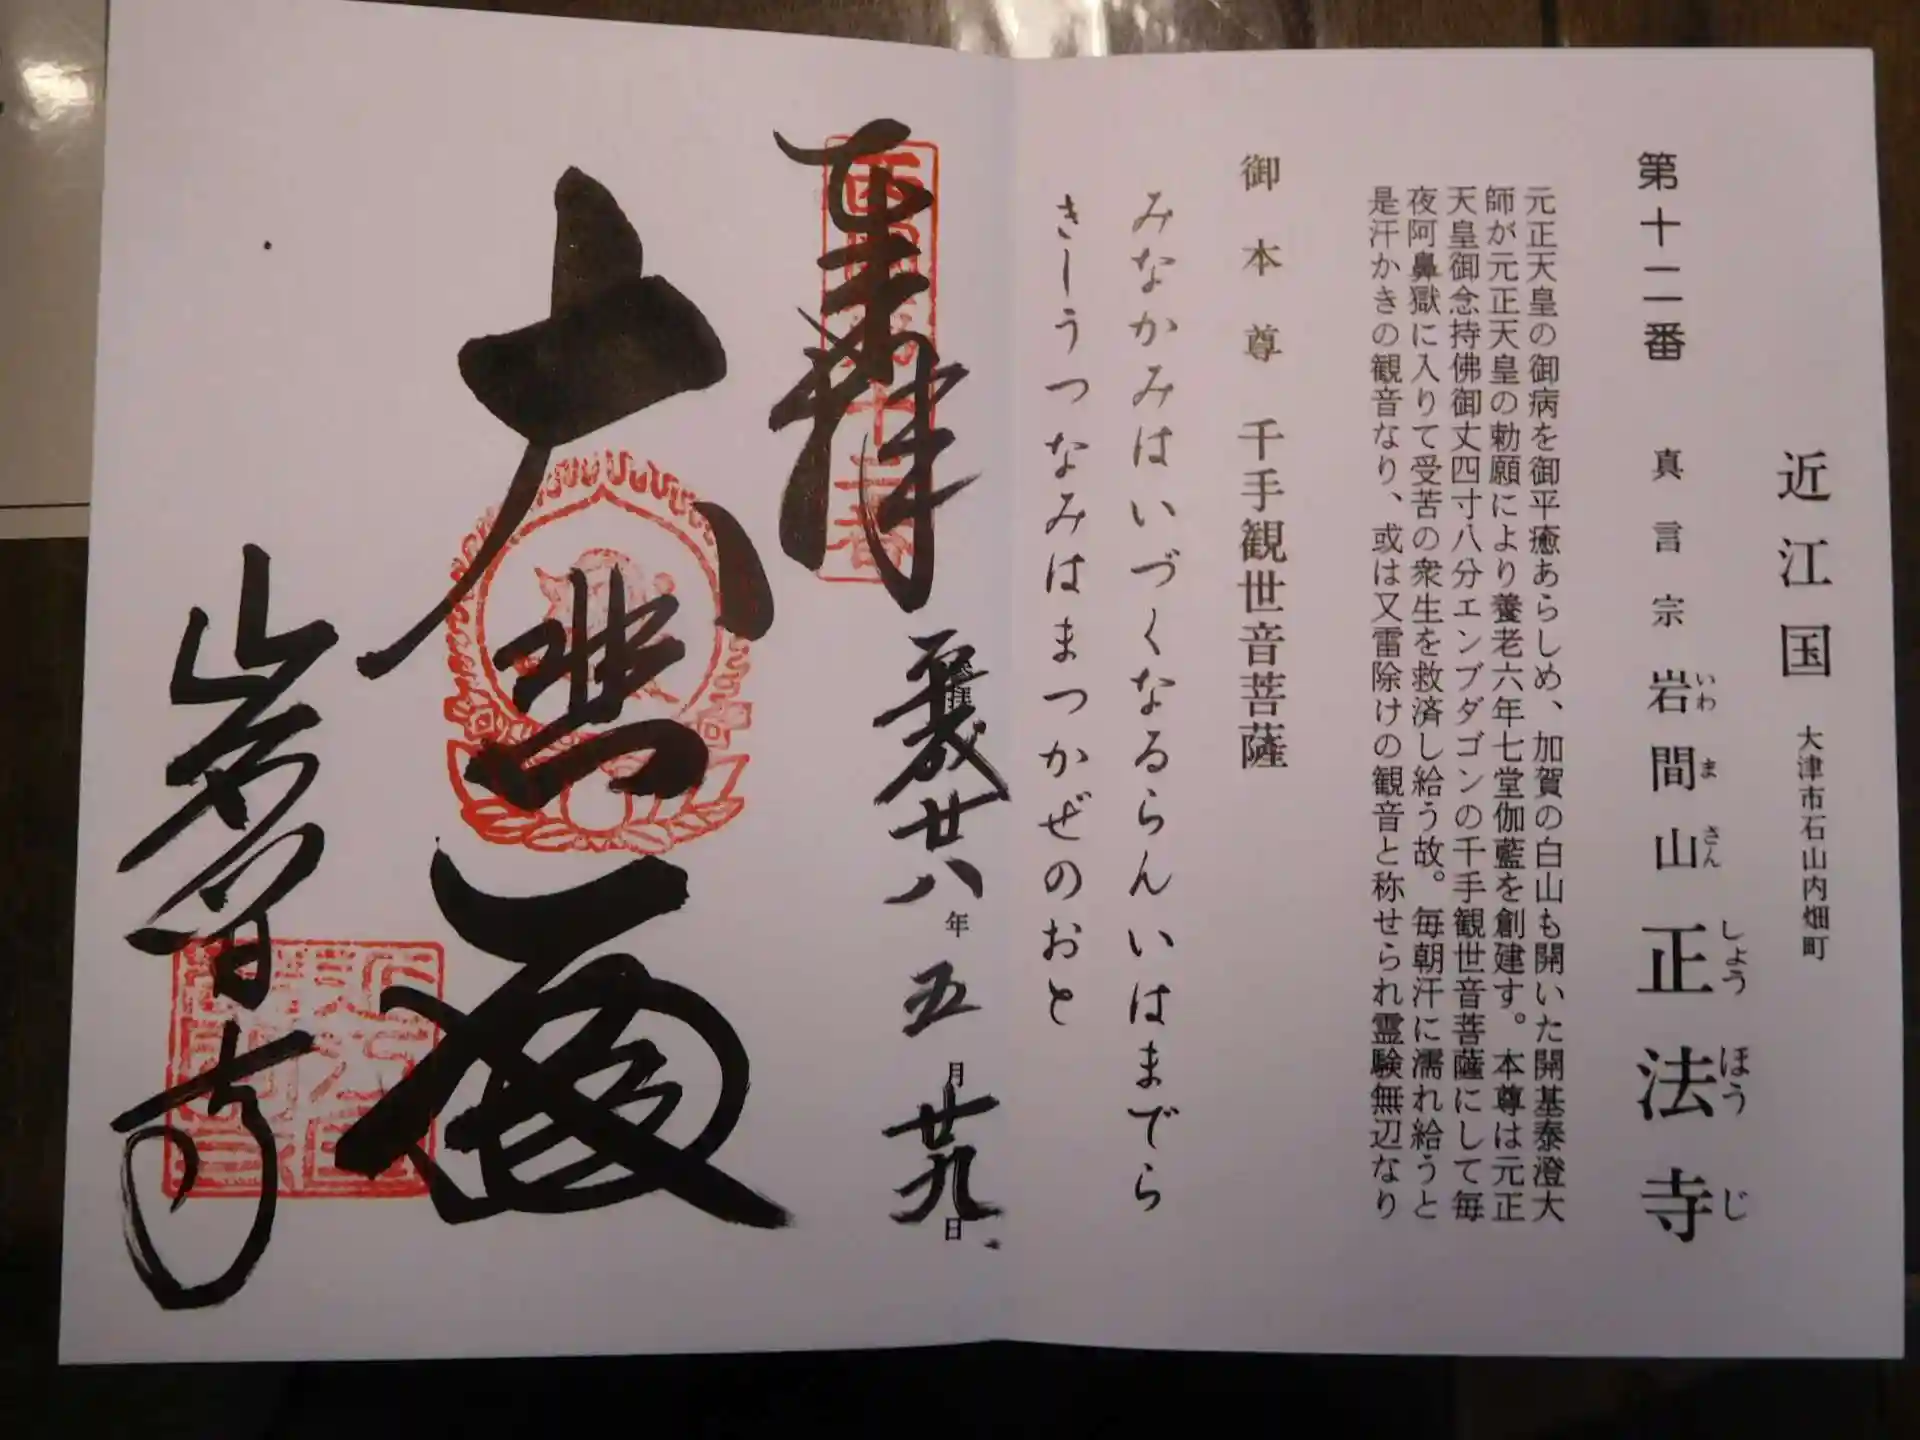 近江国 大津市石山内畑町
第十二番 真言宗 岩間山正法寺
いわ ま さん しょう ほう じ
元正天皇の御病を御平癒あらしめ、加賀の白山も開いた開基泰澄大
師が元正天皇の勅願により養老六年七堂伽藍を創建す。本尊は元正
天皇御念持佛御丈四寸八分エンブダゴンの千手観世音菩薩にして毎
夜阿鼻獄に入りて受苦の衆生を救済し給う故。毎朝汗に濡れ給うと
是汗かきの観音なり、或は又雷除けの観音と称せられ霊験無辺なり
御本尊 千手観世音菩薩
みなかみはいづくなるらんいはまでら
きしうつなみはまつかぜのおと
奉拝
平成廿八年五月廿九日
大悲殿
岩間寺